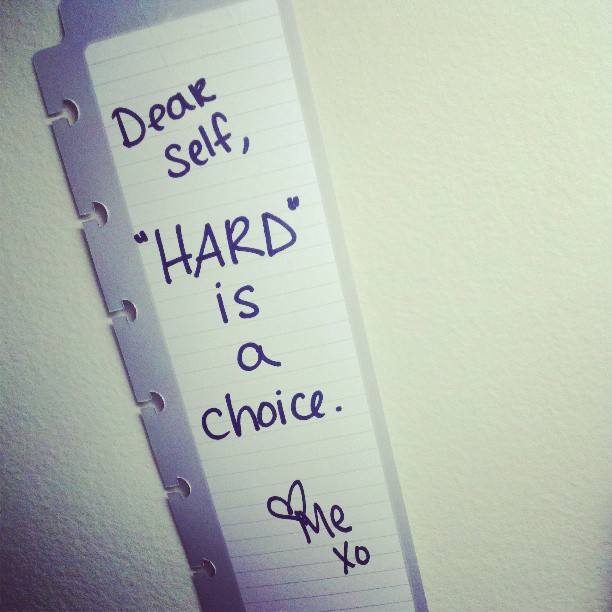 Dear
self,
"HARD"
is
a
choice.
♡Me
xo